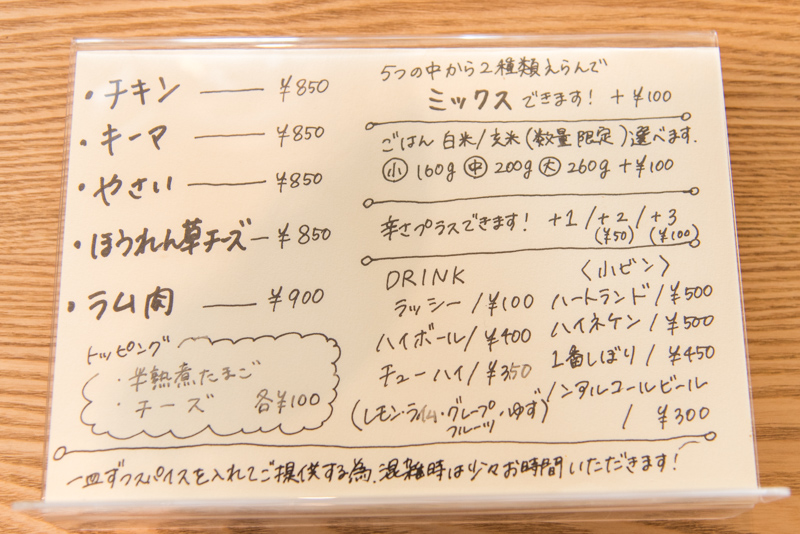 ・チキン ―― ¥850
・キーマ ―― ¥850
・やさい ―― ¥850
・ほうれん草チーズ ― ¥850
・ラム肉 ―― ¥900
トッピング
・半熟煮たまご
・チーズ 各¥100
5つの中から2種類えらんで
ミックスできます! +¥100
ごはん 白米/玄米(数量限定)選べます.
小 160g 中 200g 大 260g +¥100
辛さプラスできます! +1/+2/+3
(¥50) (¥100)
DRINK
ラッシー/¥100
ハイボール/¥400
チューハイ/¥350
(レモン・ライム・グレープフルーツ・ゆず)
〈小ビン〉
ハートランド/¥500
ハイネケン/¥500
1番しぼり/¥450
ノンアルコールビール
/ ¥300
一皿ずつスパイスを入れてご提供する為、混雑時は少々お時間いただきます!